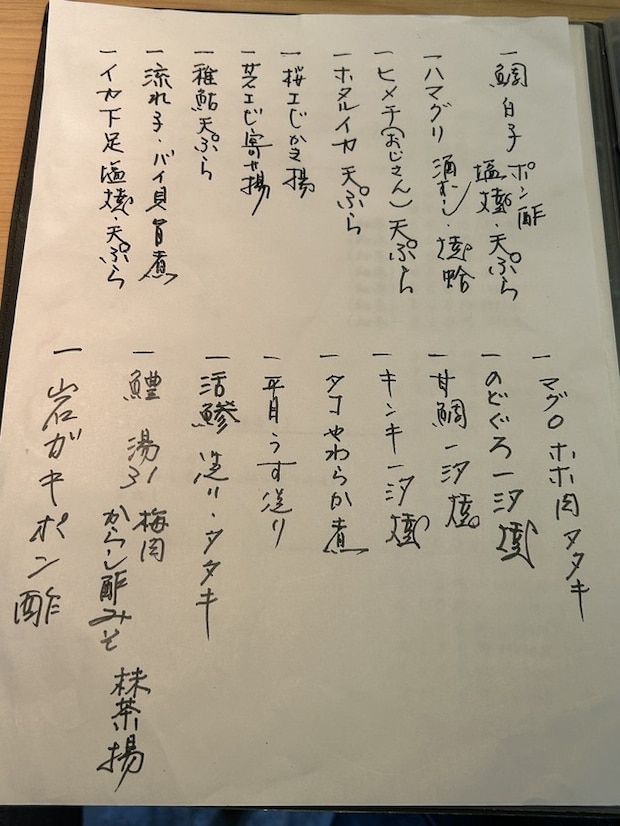 一 鯛白子 ポン酢
塩焼・天ぷら
一 ハマグリ 酒むし・焼蛤
一 ヒメチ(おじさん)天ぷら
一 ホタルイカ 天ぷら
一 桜エビかき揚
一 芝エビ寄せ揚
一 稚鮎天ぷら
一 流れ子・バイ貝旨煮
一 イカ下足塩焼・天ぷら
一 マグロホホ肉タタキ
一 のどぐろ一汐焼
一 甘鯛一汐焼
一 キンキ一汐焼
一 タコやわらか煮
一 平目うす造り
一 活鯵 造り・タタキ
一 鱧 湯引 梅肉
からし酢みそ 抹茶揚
一 岩ガキポン酢